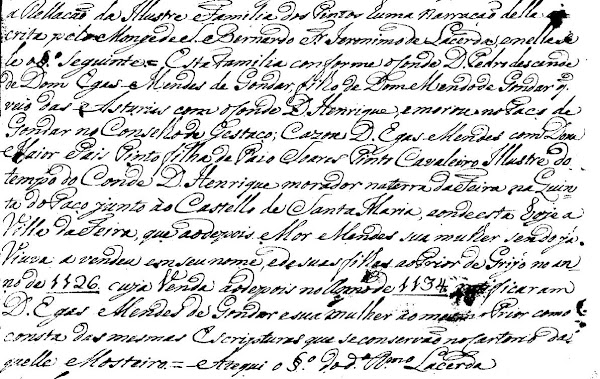 a Rellação da Illustre Familia dos Pintos huma Narracão della es
crita pelo Monge de S. Bernardo Fr. Jeronimo de Lacerda, e nella se
lê o §º seguinte = Esta familia conforme o Conde D. Pedro descende
de Dom Egas Mendes de Gondar, filho de Dom Mendo de Gondar q.
veio das Asturias com o Conde D. Henrique, e morou no Paço de
Gondar no Conselho de Gestaço; Cazou D. Egas Mendes com Dona
Maior Pais Pinto filha de Paio Soares Pinto Cavaleiro Illustre do
tempo do Conde D. Henrique morador na terra da Feira na Quin
ta do Paço junto ao Castello de Santa Maria, aonde está hoje a
Villa da Feira, que ao depois Mor Mendes sua mulher sendo já
Viuva a vendeu em seu nome, e de suas filhas ao Prior de Grijó no an
no de 1126, cuja Venda ao depois no Anno de 1134 ratificaram
D. Egas Mendes de Gondar e sua mulher ao mesmo Prior como
consta das mesmas Escripturas que se conservão no Cartorio da
quelle Mosteiro. = Atequi o §º. do d.º P.e Lacerda